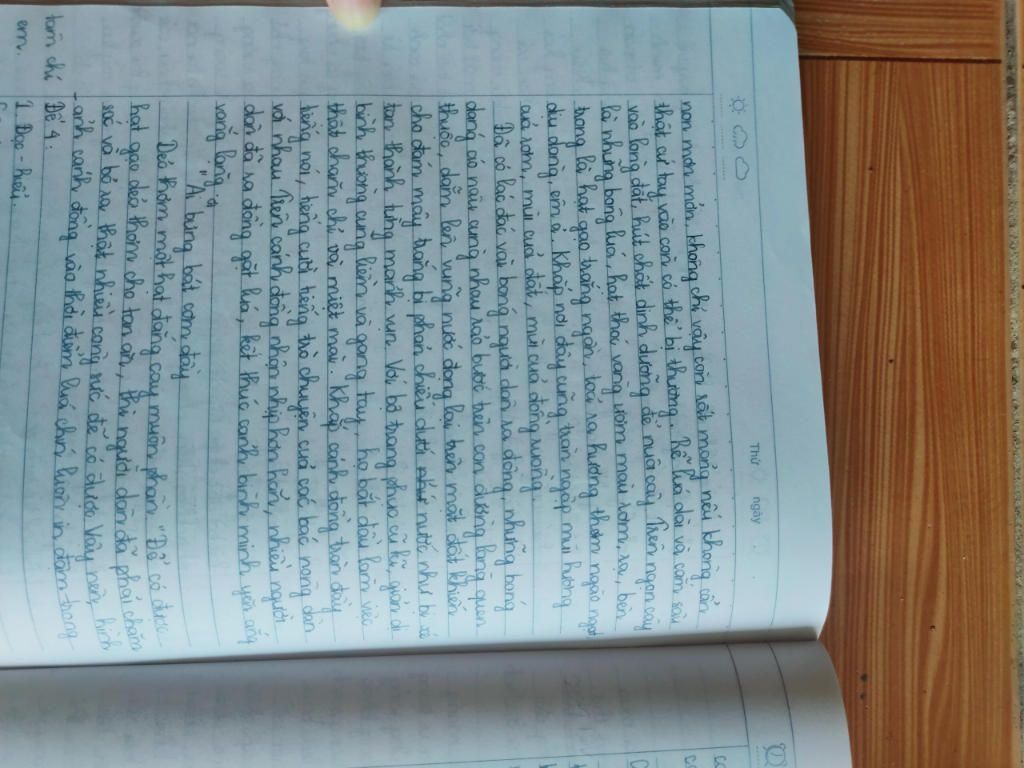 Thứ ngày
non mơn mởn, không chỉ vậy còn rất mỏng nếu không cẩn
thật cứ tay vào còn có thể bị thương. Rễ lúa dài và cắm sâu
vào lòng đất, hút chất dinh dưỡng để nuôi cây. Trên ngọn cây
là những bông lúa, hạt thoi vàng ươm màu rơm, rạ, bên
trong là hạt gạo trắng ngần, toả ra hương thơm ngào ngạt
dịu dàng, êm ả. Khắp nơi đây cũng tràn ngập mùi hương
của rơm, mùi của đất, mùi của đồng ruộng.
Đã có lác đác vài bóng người dần ra đồng, những bóng
dáng áo nâu cùng nhau rảo bước trên con đường làng quen
thuộc, dẫm lên vũng nước đọng lại bên mặt đất khiến
cho đám mây trắng bị phản chiếu dưới nước như bị xé
tan thành từng mảnh vụn. Với bộ trang phục cũ kĩ, giản dị
bình thường cùng liềm và găng tay, họ bắt đầu làm việc
thật chăm chỉ và miệt mài. Khắp cánh đồng tràn đầy
tiếng nói, tiếng cười tiếng trò chuyện của các bác nông dân
với nhau. Trên cánh đồng nhộn nhịp hơn hẳn, nhiều người
dân đã ra đồng gặt lúa, kết thúc cảnh bình minh yên ắng
vắng lặng.
"Ai bưng bát cơm đầy
Dẻo thơm một hạt đắng cay muôn phần" Để có được
hạt gạo dẻo thơm cho ta ăn, thì người dân đã phải chăm
sóc và bỏ ra thật nhiều công sức để có được. Vậy nên, hình
ảnh cánh đồng vào thời điểm lúa chín luôn in đậm trong
tâm chí
em.
Đề 4:
1. Đọc - hiểu.